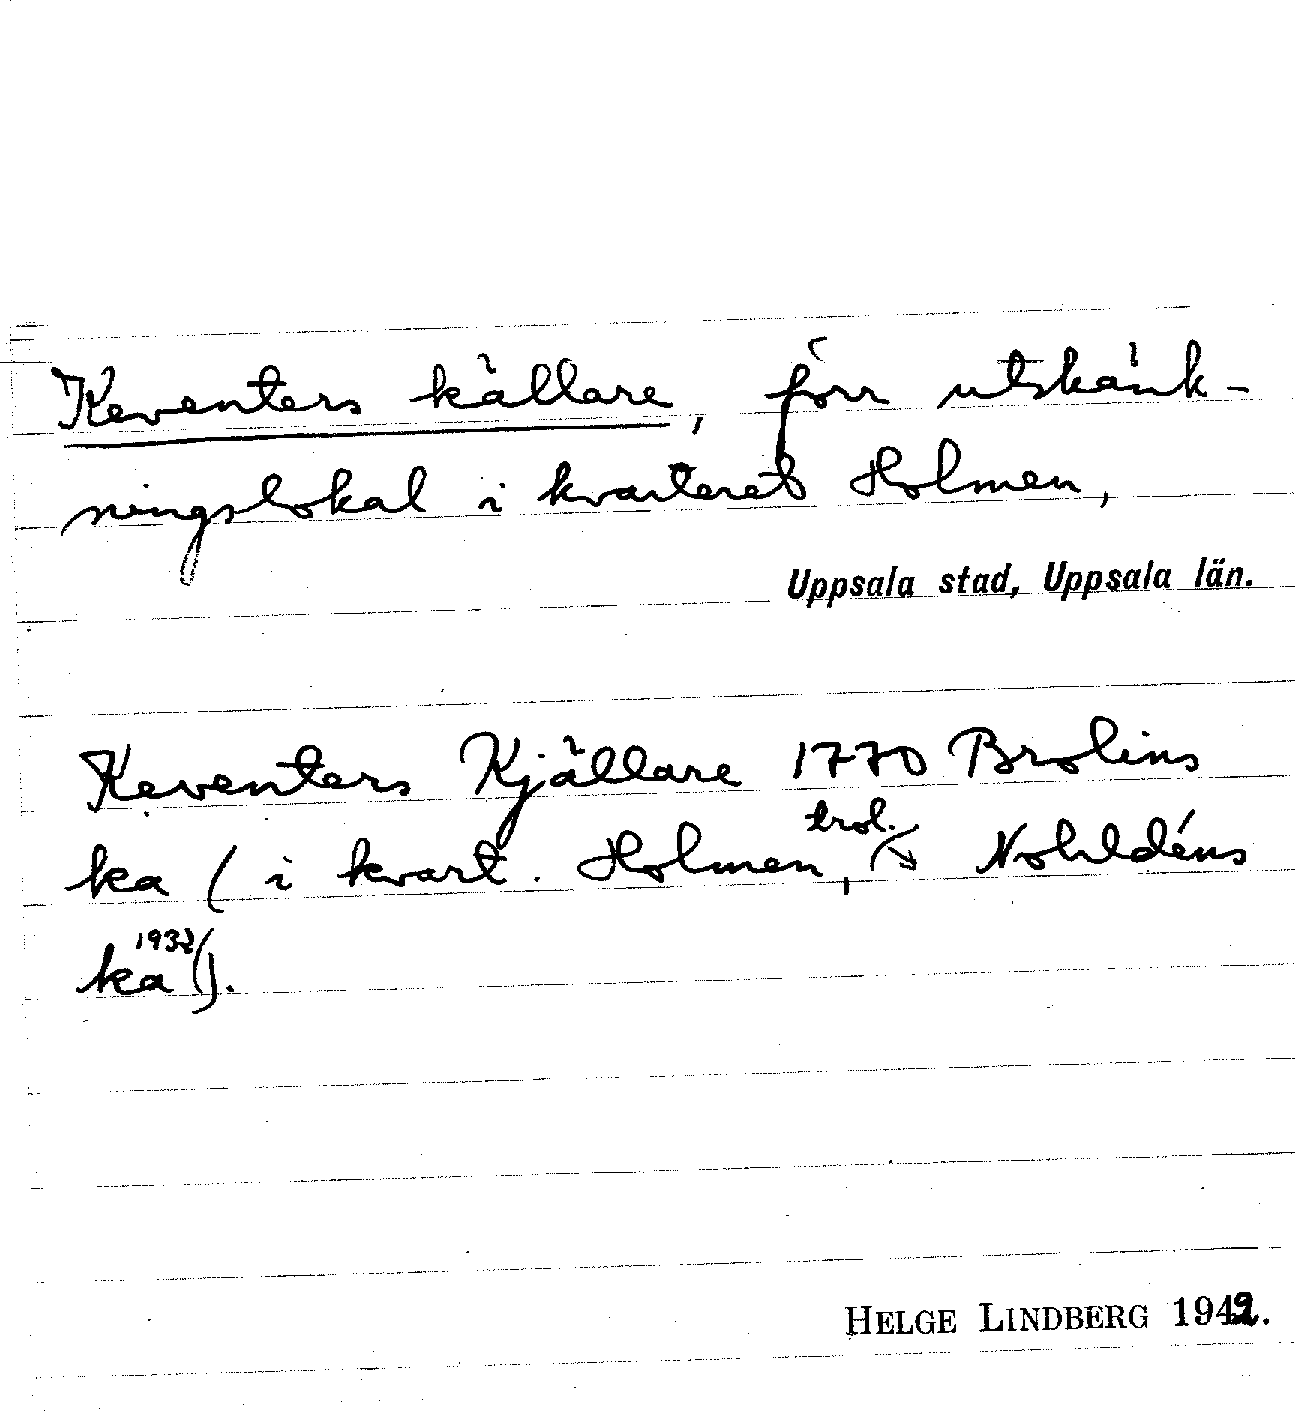 Keventers källare, förr utskänk-
ningslokal i kvarteret Holmen,
Uppsala stad, Uppsala län.
Keventers Kjällare 1770 Brolins
trol.
ka (i kvart. Holmen, Nohldéns
1932
ka).
HELGE LINDBERG 1949.